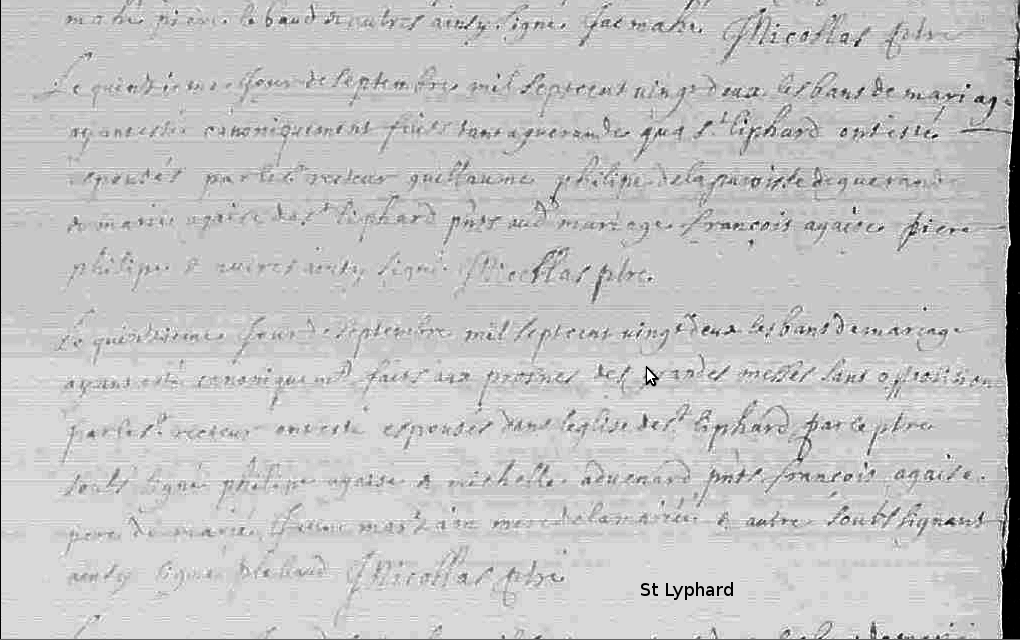 mahe pierre le baud & autres ainsy signé Jac mahe Nicollas ptre
Le quinzieme Jour de Septembre mil septcent vingt deux les bans de mariage
ayant estés canoniquement faits tant a guerande qu'a St liphard ont esté
épousés par le Sr recteur guillaume philipe de la paroisse de guerande
& marie agaise de St liphard pnts aud mariage francois agaise pierre
philipe & autres ainsy signé Nicollas ptre
Le quinzieme Jour de Septembre mil septcent vingt deux les bans de mariage
ayant esté canoniquemt faits aux prosnes des grandes messes sans opposition
par le Sr recteur ont esté espousés dans leglise de St liphard par le ptre
soubs signé philipe agaise & michelle aduenard pnts francois agaise
pere de marié mere de la mariée & autre soubs signant
ainsy signé p le baud Nicollas ptre
St Lyphard